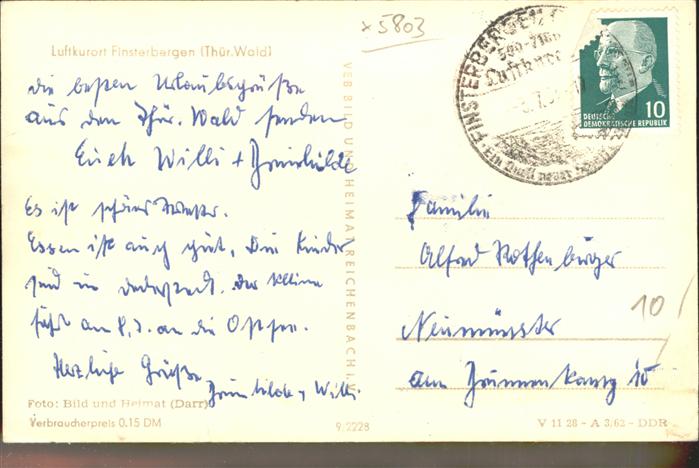 x 5803
Luftkurort Finsterbergen (Thür. Wald)
die besten Urlaubsgrüße
aus dem Thür. Wald senden
Euch Willi + Grimhilde
Es ist schönes Wetter.
Essen ist auch gut. Die Kinder
sind in . Der Kleine
fährt am 8.7. an die Ostsee.
Herzliche Grüße
Grimhilde + Willi
Foto: Bild und Heimat (Darr)
Verbraucherpreis 0.15 DM
VEB BILD UND HEIMAT REICHENBACH I. V.
9/2228
FINSTERBERGEN
DEUTSCHE
DEMOKRATISCHE REPUBLIK
10
Familie
Alfred Rothenburger
10/
Neumünster
am Brunnenkamp 10
V 11 28 - A 3/62 - DDR